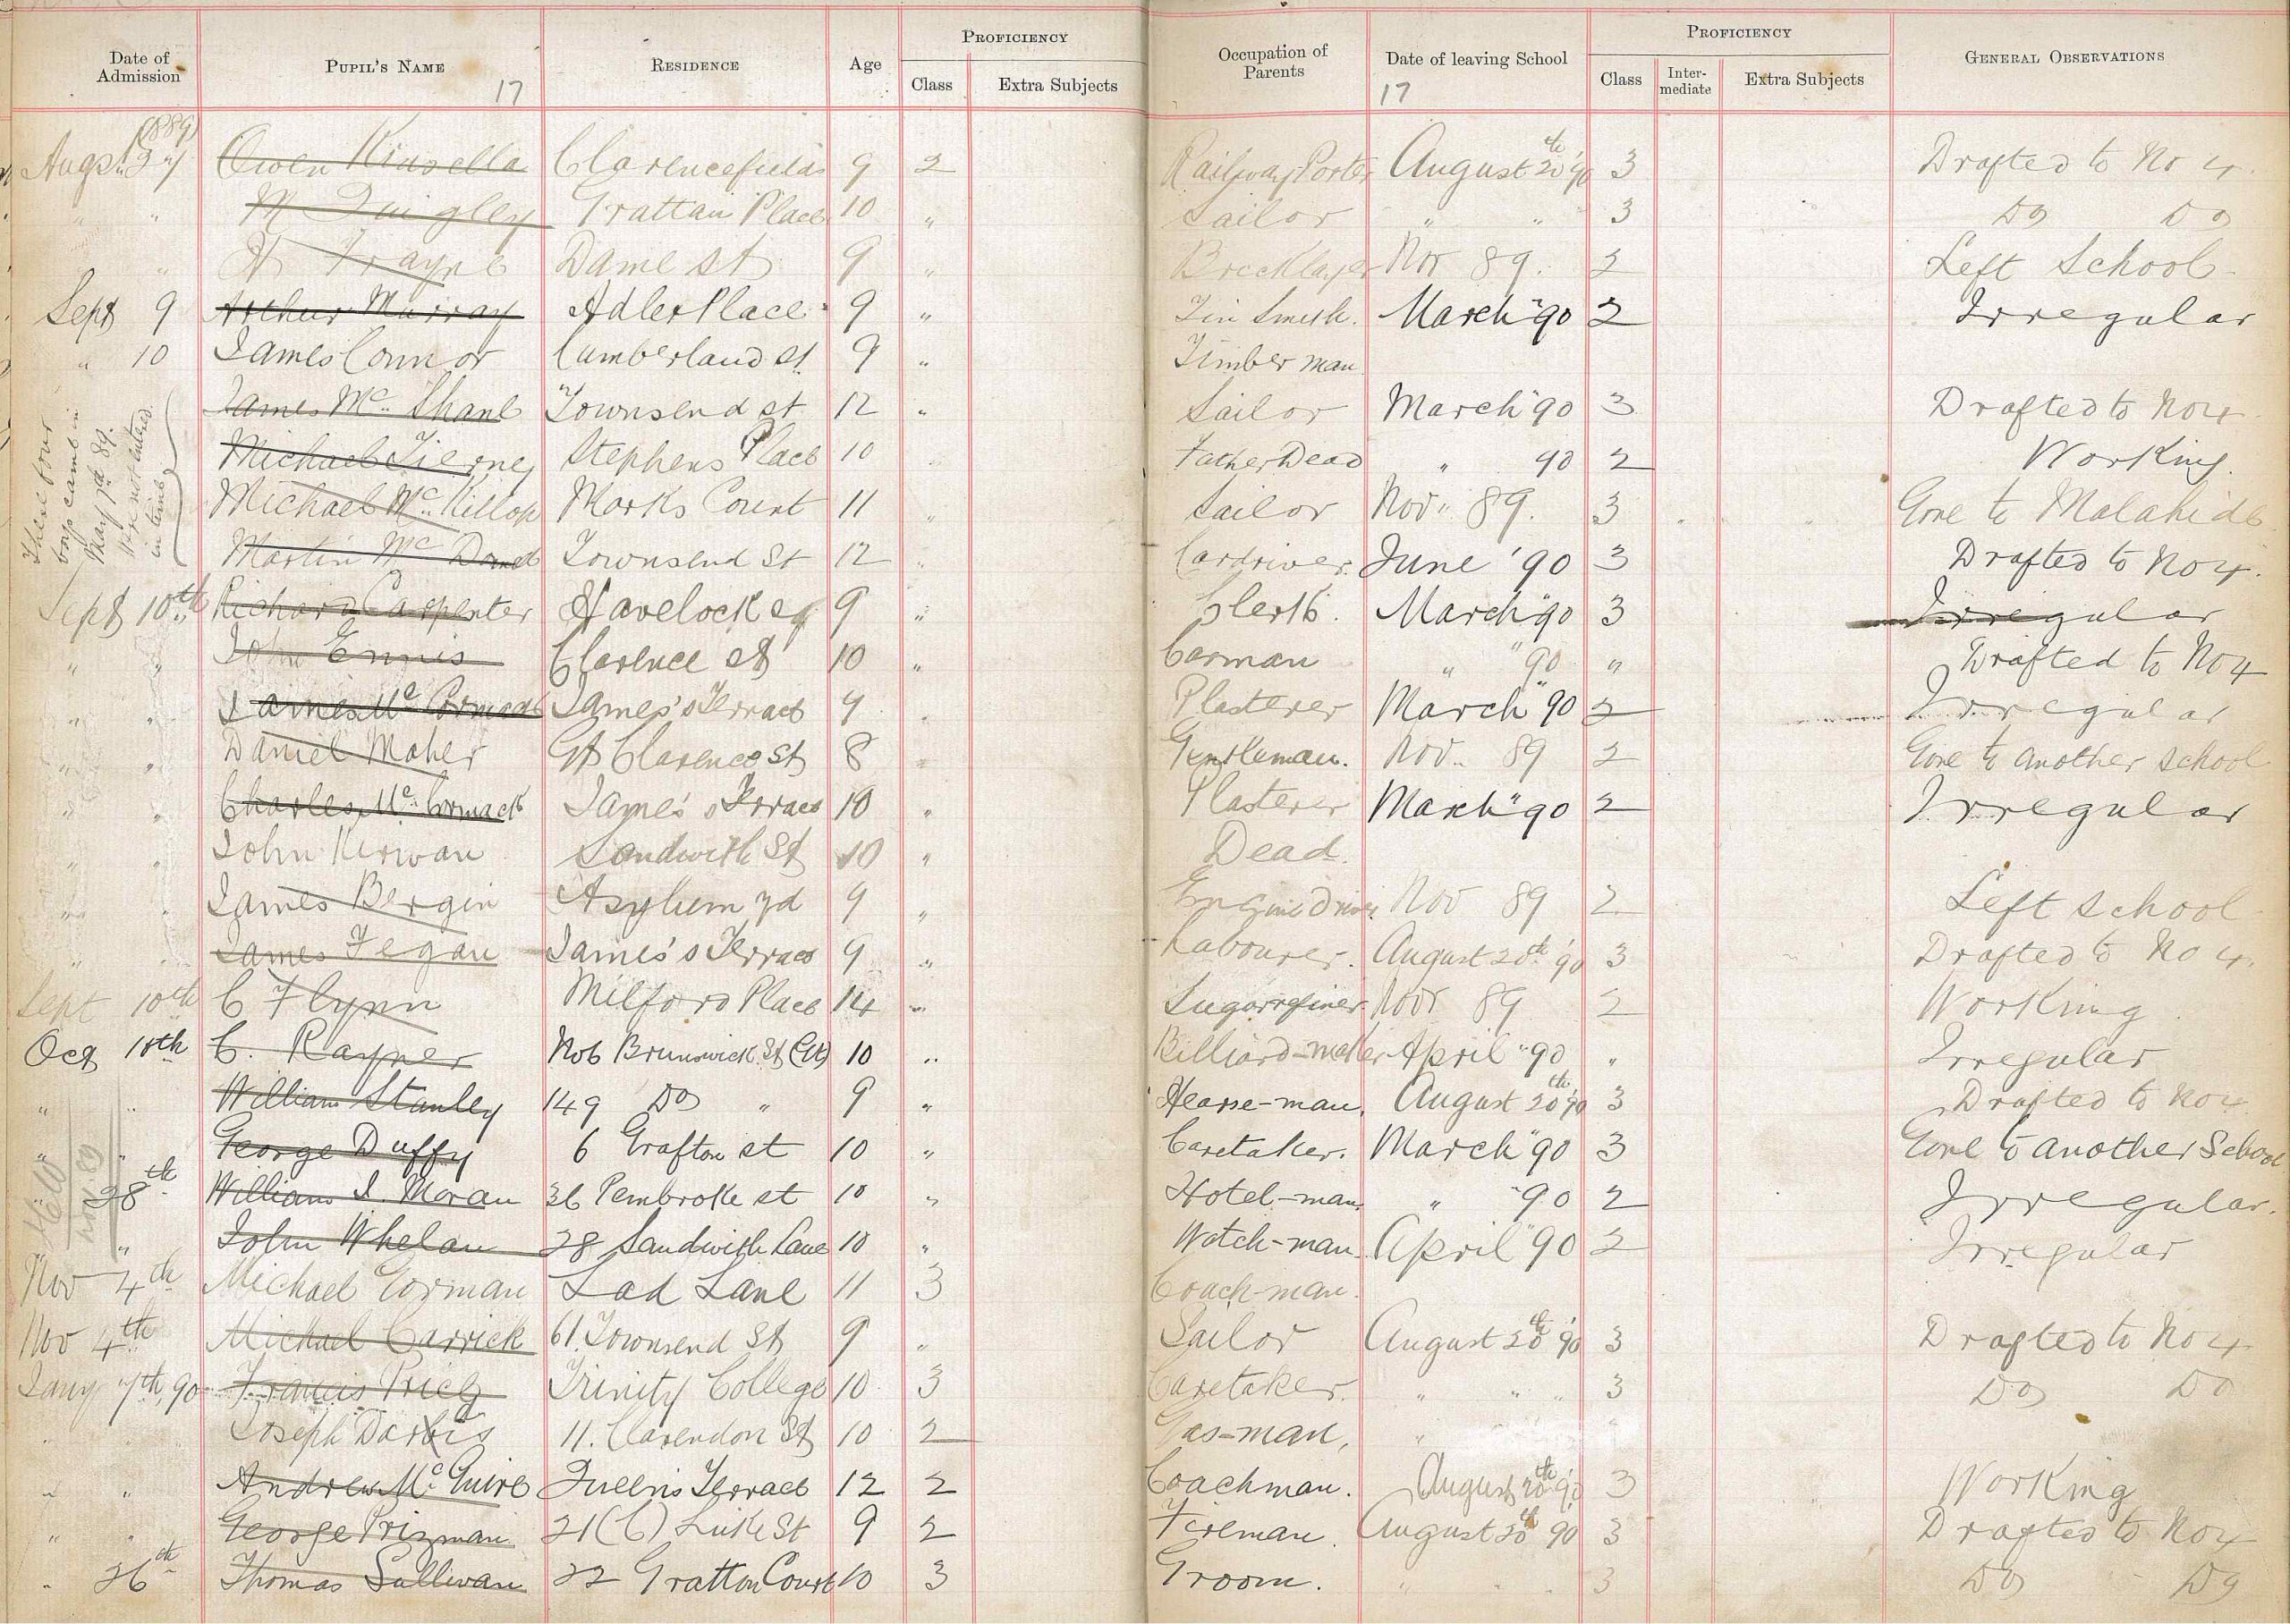 Date of Admission PUPIL'S NAME RESIDENCE Age PROFICIENCY Class Extra Subjects Occupation of Parents Date of leaving School PROFICIENCY Class Inter-mediate Extra Subjects GENERAL OBSERVATIONS
17 17
(1889)
Augst. 27 Owen Kinsella Clarencefields 9 2 Railway Porter August 20th '90 3 Drafted to No 4.
" " M Quigley Grattan Place 10 " Sailor " " 3 Do Do
" Frayne Dame st 9 " Bricklayer Nov 89. 2 Left School
Sept 9 Arthur Murray Adler Place 9 " Tin Smith. March "90 2 Irregular
" 10 James Connor Cumberland st 9 " Timber man
James Mc Shane Townsend st 12 " Sailor March "90 3 Drafted to No 4
Michael Tierney Stephens Place 10 Father Dead " 90 2 Working.
Michael Mc Killop Marks Court 11 " Sailor Nov" 89. 3 Gone to Malahide
Martin Mc Townsend St 12 " Cardriver June '90 3 Drafted to No 4.
These four boys came in May 7th 89. were not entered in time
Sept 10th Richard Carpenter Havelock sq 9 " Clerk. March "90 3 Irregular
" " John Ennis Clarence st 10 " Carman " "90 " Drafted to No 4
" " James Mc Cormack James's Terrace 9 " Plasterer March "90 2 Irregular
" " Daniel Maher Gt Clarence St 8 " Gentleman. Nov" 89 2 Gone to another school
" " Charles Mc Cormack James's Terrace 10 " Plasterer March "90 2 Irregular
" " John Kirwan Sandwith St 10 " Dead.
" " James Bergin Asylum yd 9 " Engine Driver Nov 89 2 Left school
" " James Fegan James's Terrace 9 " Labourer. August 20th '90 3 Drafted to No 4.
Sept 10th C Flynn Milford Place 14 " Sugarrefiner. Nov 89 2 Working.
Oct 10th C. Rayner No6 Brunswick St (Gt) 10 " Billiard-maker April "90 " Irregular
" " William Stanley 149 Do " 9 " Hearse-man. August 20th '90 3 Drafted to No 4
" " George Duffy 6 Grafton st 10 " Caretaker. March "90 3 Gone to another School
28th William J. Moran 36 Pembroke st 10 " Hotel-man " "90 2 Irregular.
" John Whelan 28 Sandwith Lane 10 " Watch-man. April "90 2 Irregular
Nov. 89
Nov 4th Michael Gorman Lad Lane 11 3 Coach-man.
Nov 4th Michael Carrick 61. Townsend St 9 " Sailor August 20th '90 3 Drafted to No 4.
Jany 7th, 90 Francis Price Trinity College 10 3 Caretaker. " " " 3 Do Do
" Joseph 11. Clarendon St 10 2 Gas-man, "
" " Andrew Mc Guire Queen's Terrace 12 2 Coachman. August 20th '90 3 Working
" " George Prizman 21(C) Luke St 9 2 Fireman. August 20th 90 3 Drafted to No 4
" 26th Thomas Sullivan 22 Gratton Court 10 3 Groom. " " " 3 Do Do